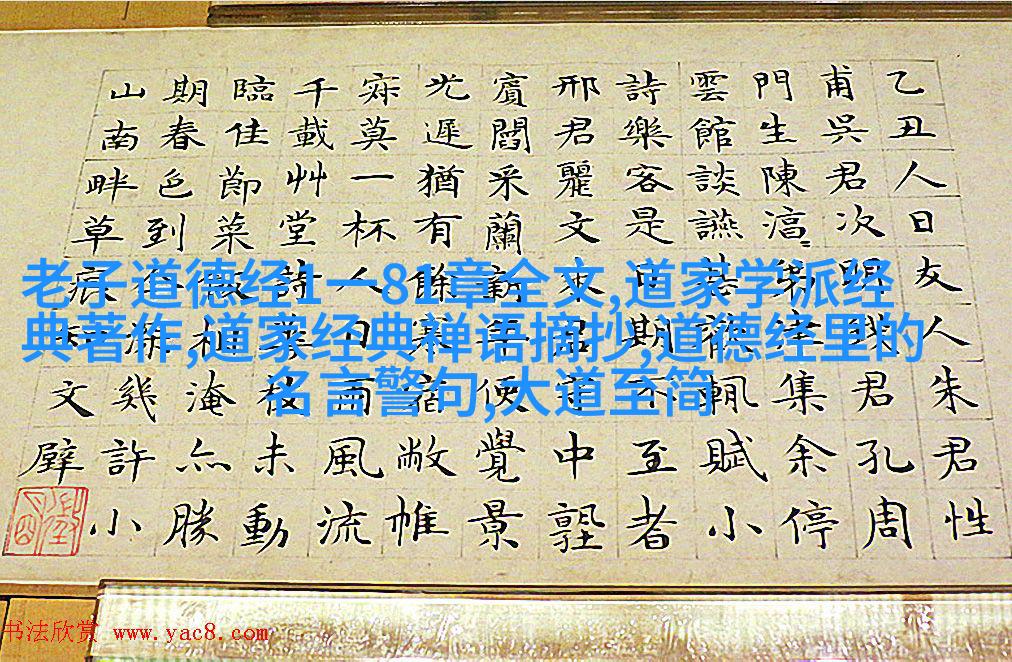 乙丑人日友人朱君性
甫吳君次明錢君孔周
門生陳淳集余停
雲館談讌甚輒賦小
詩樂客是日期不至者
邢君麗文中
賓閻采蘭新年便覺景
光遲猶有餘寒宿敝帷
寂莫一杯人日雨風流
千載艸堂詩枝未動
臨佳節菜微淹亦勝
期春色到幾許小
山南畔草痕文壁
老子道德经1一81章全文,道家学派经
典著作,道家经典禅语摘抄,道德经里的
名言警句,大道至简
书法欣赏 www.yac8.com